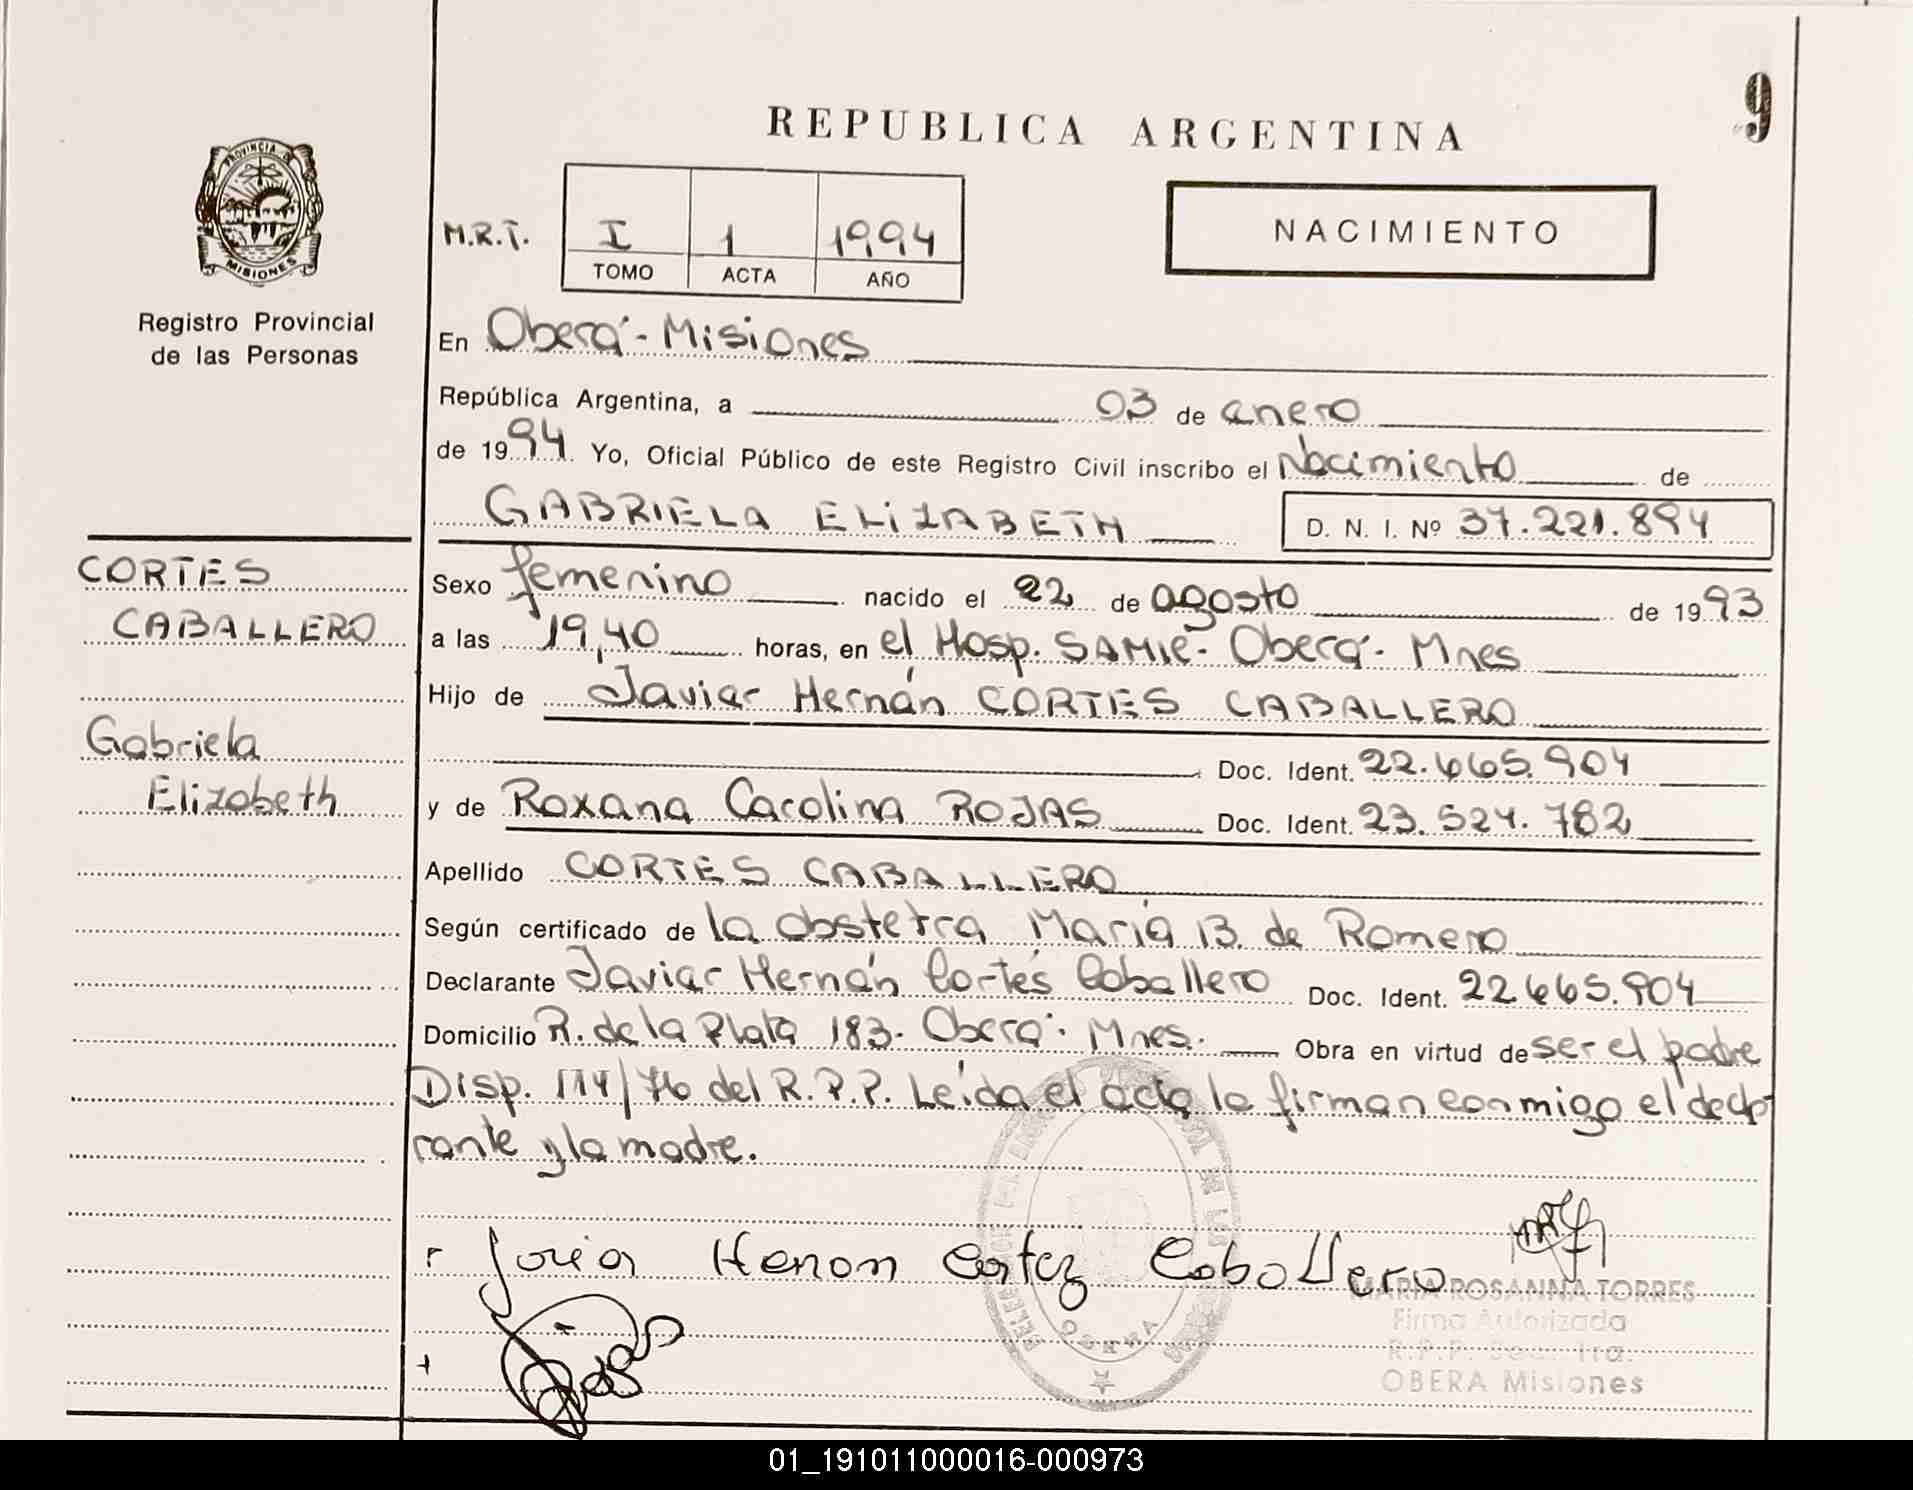 9
REPUBLICA ARGENTINA
PROVINCIA DE
MISIONES
Registro Provincial
de las Personas
M.R.T. I 1 1994
TOMO ACTA AÑO
NACIMIENTO
En Oberá - Misiones
República Argentina, a 03 de enero
de 1994 Yo, Oficial Público de este Registro Civil inscribo el Nacimiento de
GABRIELA ELIZABETH D. N. I. Nº 37.221.894
CORTES
CABALLERO
Gabriela
Elizabeth
Sexo femenino nacido el 22 de agosto de 1993
a las 19,40 horas, en el Hosp. SAMIC - Oberá - Mnes
Hijo de Javier Hernán CORTES CABALLERO
Doc. Ident. 22.665.904
y de Roxana Carolina ROJAS Doc. Ident. 23.524.782
Apellido CORTES CABALLERO
Según certificado de la obstetra María B. de Romero
Declarante Javier Hernán Cortés Caballero Doc. Ident. 22.665.904
Domicilio R. de la Plata 183 - Oberá - Mnes. Obra en virtud de ser el padre
Disp. 114/76 del R.P.P. Leída el acta la firman conmigo el decla-
rante y la madre.
Javier Hernan Cortez Caballero
Rojas
MARIA ROSANNA TORRES
Firma Autorizada
R.P.P. Sec. 1ra.
OBERA Misiones
01_191011000016-000973